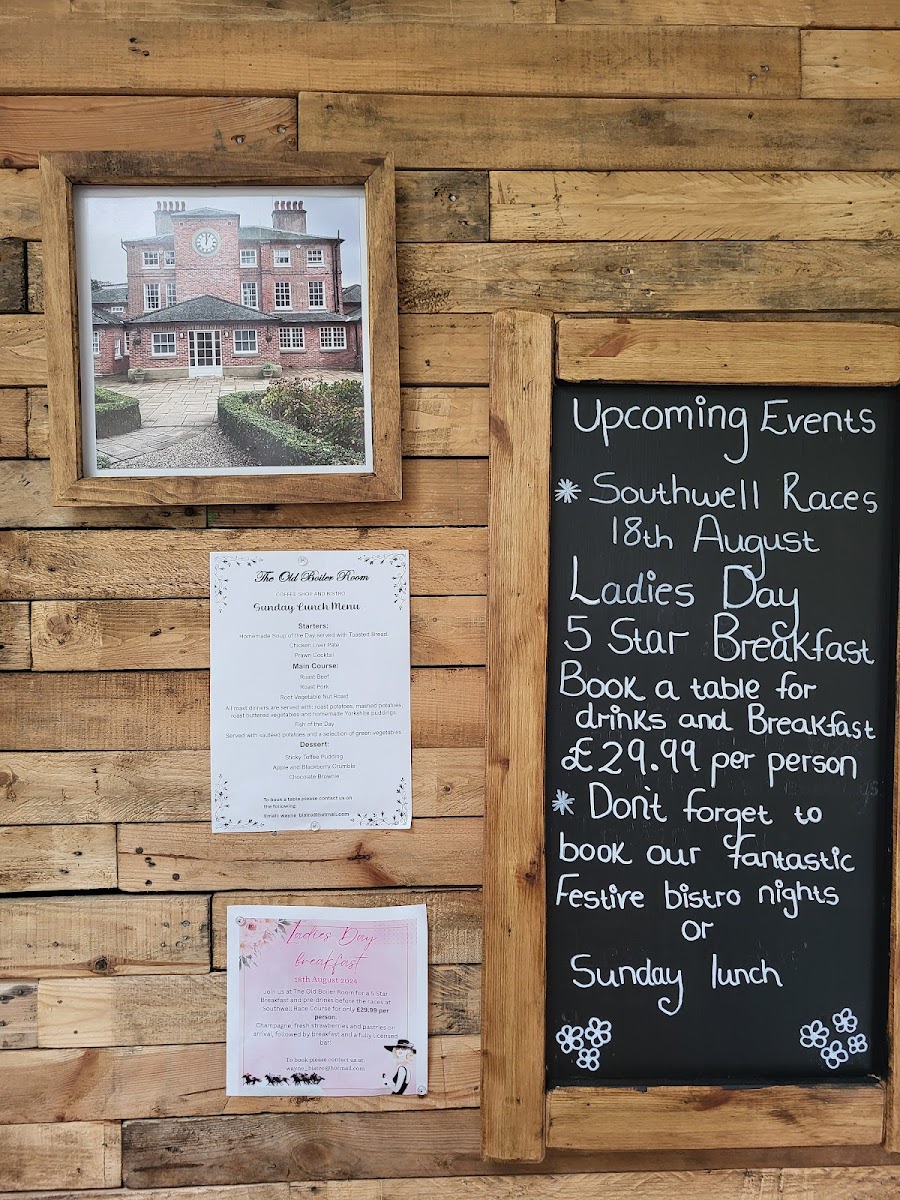 The Old Boiler Room
COFFEE SHOP AND BISTRO
Sunday Lunch Menu
Starters:
Homemade Soup of the Day served with Toasted Bread
Chicken Liver Pate
Prawn Cocktail
Main Course:
Roast Beef
Roast Pork
Root Vegetable Nut Roast
All roast dinners are served with: roast potatoes, mashed potatoes,
roast buttered vegetables and homemade Yorkshire puddings.
Fish of the Day
Served with sautéed potatoes and a selection of green vegetables
Dessert:
Sticky Toffee Pudding
Apple and Blackberry Crumble
Chocolate Brownie
To book a table please contact us on
the following:
Ladies Day
breakfast
18th August 2024
Join us at The Old Boiler Room for a 5 Star
Breakfast and pre drinks before the races at
Southwell Race Course for only £29.99 per
person.
Champagne, fresh strawberries and pastries on
arrival, followed by breakfast and a fully licensed
bar!
To book please contact us at
wayne_bistro@hotmail.com
Upcoming Events
* Southwell Races
18th August
Ladies Day
5 Star Breakfast
Book a table for
drinks and Breakfast
£29.99 per person
* Don't forget to
book our fantastic
Festive bistro nights
or
Sunday lunch